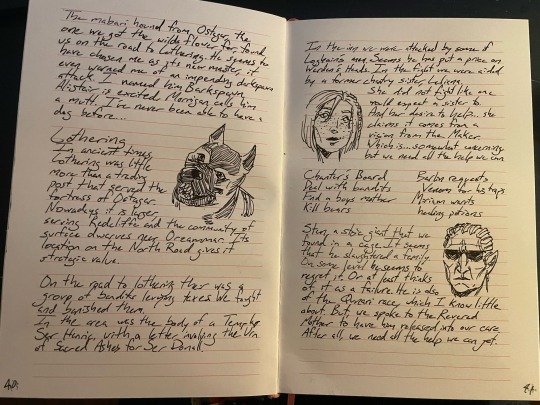 The mabari hound from Ostagar, the
one we got the wildflower for, found
us on the road to Lothering. He seems to
have chosen me as its new master, it
even warned me of an impending darkspawn
attack. I named him Barkspawn.
Alistair is excited. Morrigan calls him
a mutt. I've never been able to have a
dog before...
Lothering
In ancient times
Lothering was little
more than a trading
post that served the
fortress of Ostagar.
Nowadays it is larger
serving Redcliffe and the community of
surface dwarves near Orzammar. Its
location on the North Road gives it
strategic value.
On the road to Lothering ther was a
group of bandits levying taxes. We fought
and banished them.
In the area was the body of a Templar
Ser Henric, with a letter involving the Urn
of Sacred Ashes for Ser Donall.
In the inn we were attacked by some of
Loghain's men. Seems he has put a price on
Warden's Heads. In the fight we were aided
by a former chantry sister, Leliana.
She did not fight like one
would expect a sister to.
And her desire to help... she
claims it comes from a
vision from the Maker.
Which is... somewhat concerning
but we need all the help we can
Chanter's Board
Deal with bandits
Find a boys mother
Kill bears
Barlin requests
Venom for his traps
Miriam wants
healing potions
Sten, a stoic giant that we
found in a cage. It seems
that he slaughtered a family.
On some level he seems to
regret it. Or at least thinks
of it as a failure. He is also
of the Qunari race, which I know little
about. But we spoke to the Revered
Mother to have him released into our care.
After all, we need all the help we can get.